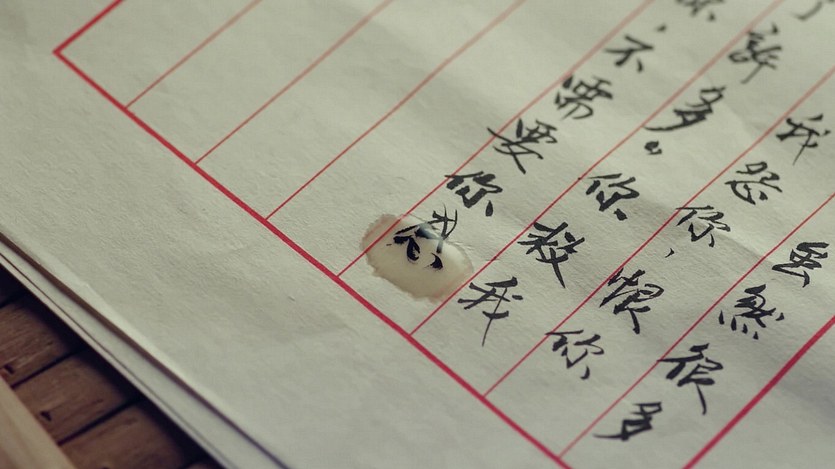 虽然很多
我怨你,恨你
许多。你救我
不需要你